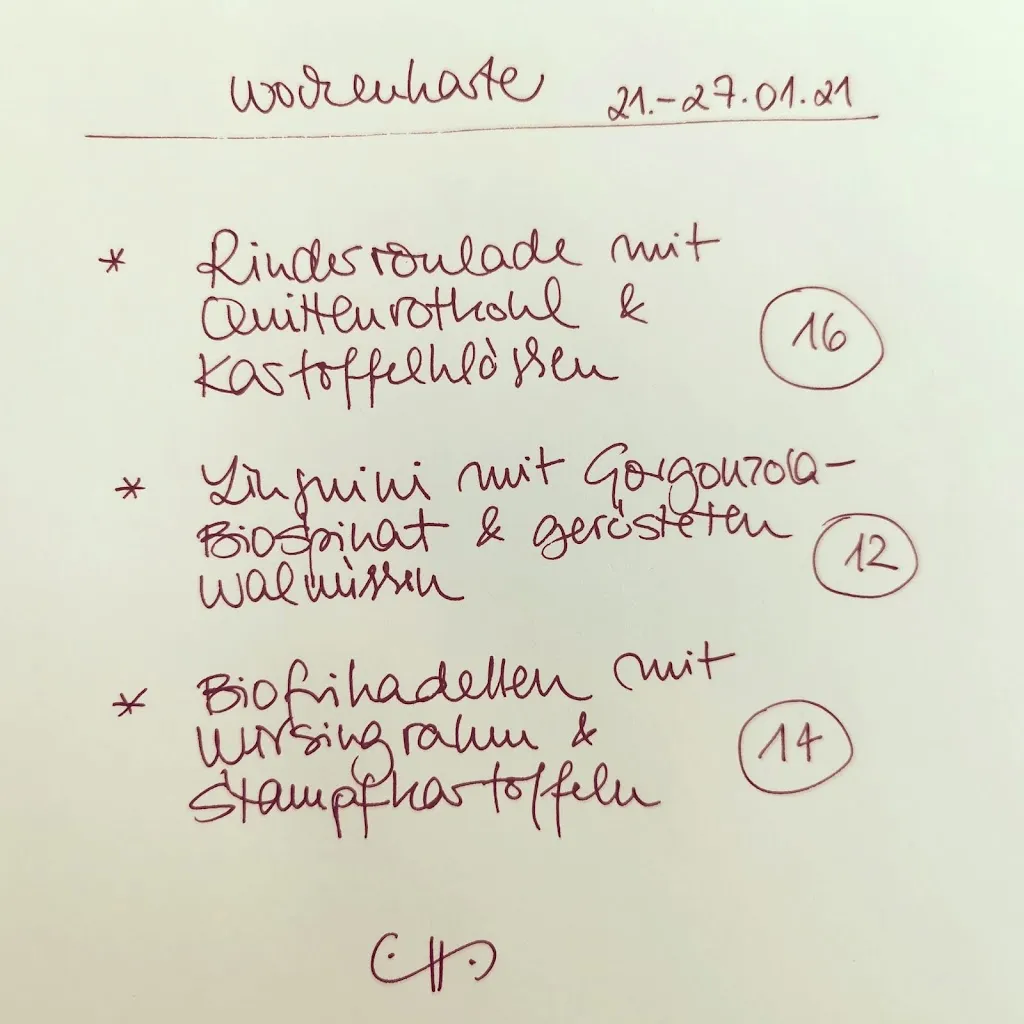 Wochenkarte 21.-27.01.21
* Rinderroulade mit
Quittenrotkohl &
Kartoffelklößen 16
* Linguini mit Gorgonzola-
Biospinat & gerösteten
Walnüssen 12
* Biofrikadellen mit
Wirsingrahm &
Stampfkartoffeln 14